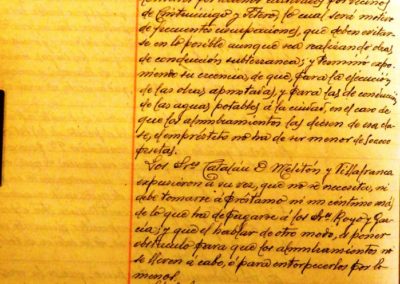 de Cintruénigo y Fitero, lo cual será motivo
de frecuentes usurpaciones, que deben evitar-
se en lo posible aunque sea realizando obras
de conducción subterranea; y terminó expo-
niendo su creencia de que, para la ejecución
de las obras apuntadas, y para las de conducción
de las aguas potables á la ciudad, en el caso de
que los alumbramientos las dieran de esa cla-
se, el empréstito no ha de ser menor de
pesetas.
Los Sres Catalán D. Melitón y Villafranca
expusieron á su vez, que no se necesita, ni
debe tomarse á préstamo ni un céntimo más
de lo que ha de pagarse á los Sres Royo y Gar-
cía; y que el hablar de otro modo, es poner
obstáculo para que los alumbramientos no
se lleven á cabo, ó para entorpecerlos por lo
menos.